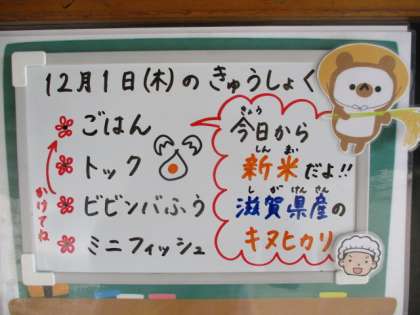 12月1日(木)のきゅうしょく
ごはん
トック
ビビンバふう
ミニフィッシュ
かけてね
きょう
今日から
しん まい
新米だよ!!
しがけんさん
滋賀県産の
キヌヒカリ